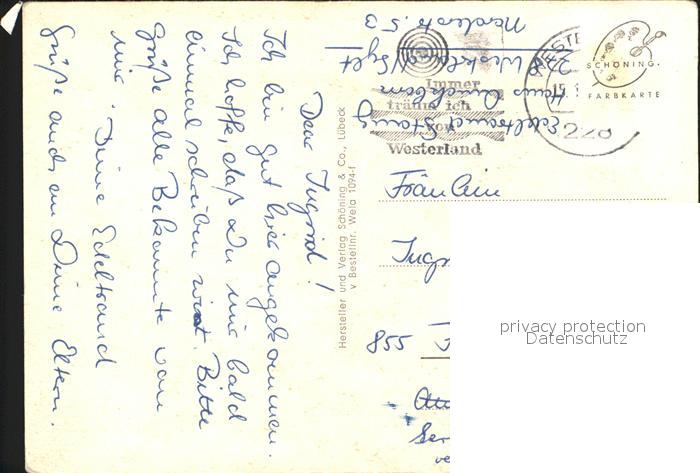 Dear Ingrid!
Ich bin gut hier angekommen.
Ich hoffe, daß Du mir bald
einmal schreiben wirst. Bitte
grüße alle Bekannte von
mir. Deine Edeltraud
Grüße auch an Deine Eltern.
Hersteller und Verlag Schöning & Co., Lübeck
v Bestellnr. Wela 1094-1
Edeltraud
Haus
228 Westerland/Sylt
Immer
träum ich
von
Westerland
228
SCHÖNING-
FARBKARTE
Fräulein
Ingr
855
privacy protection
Datenschutz